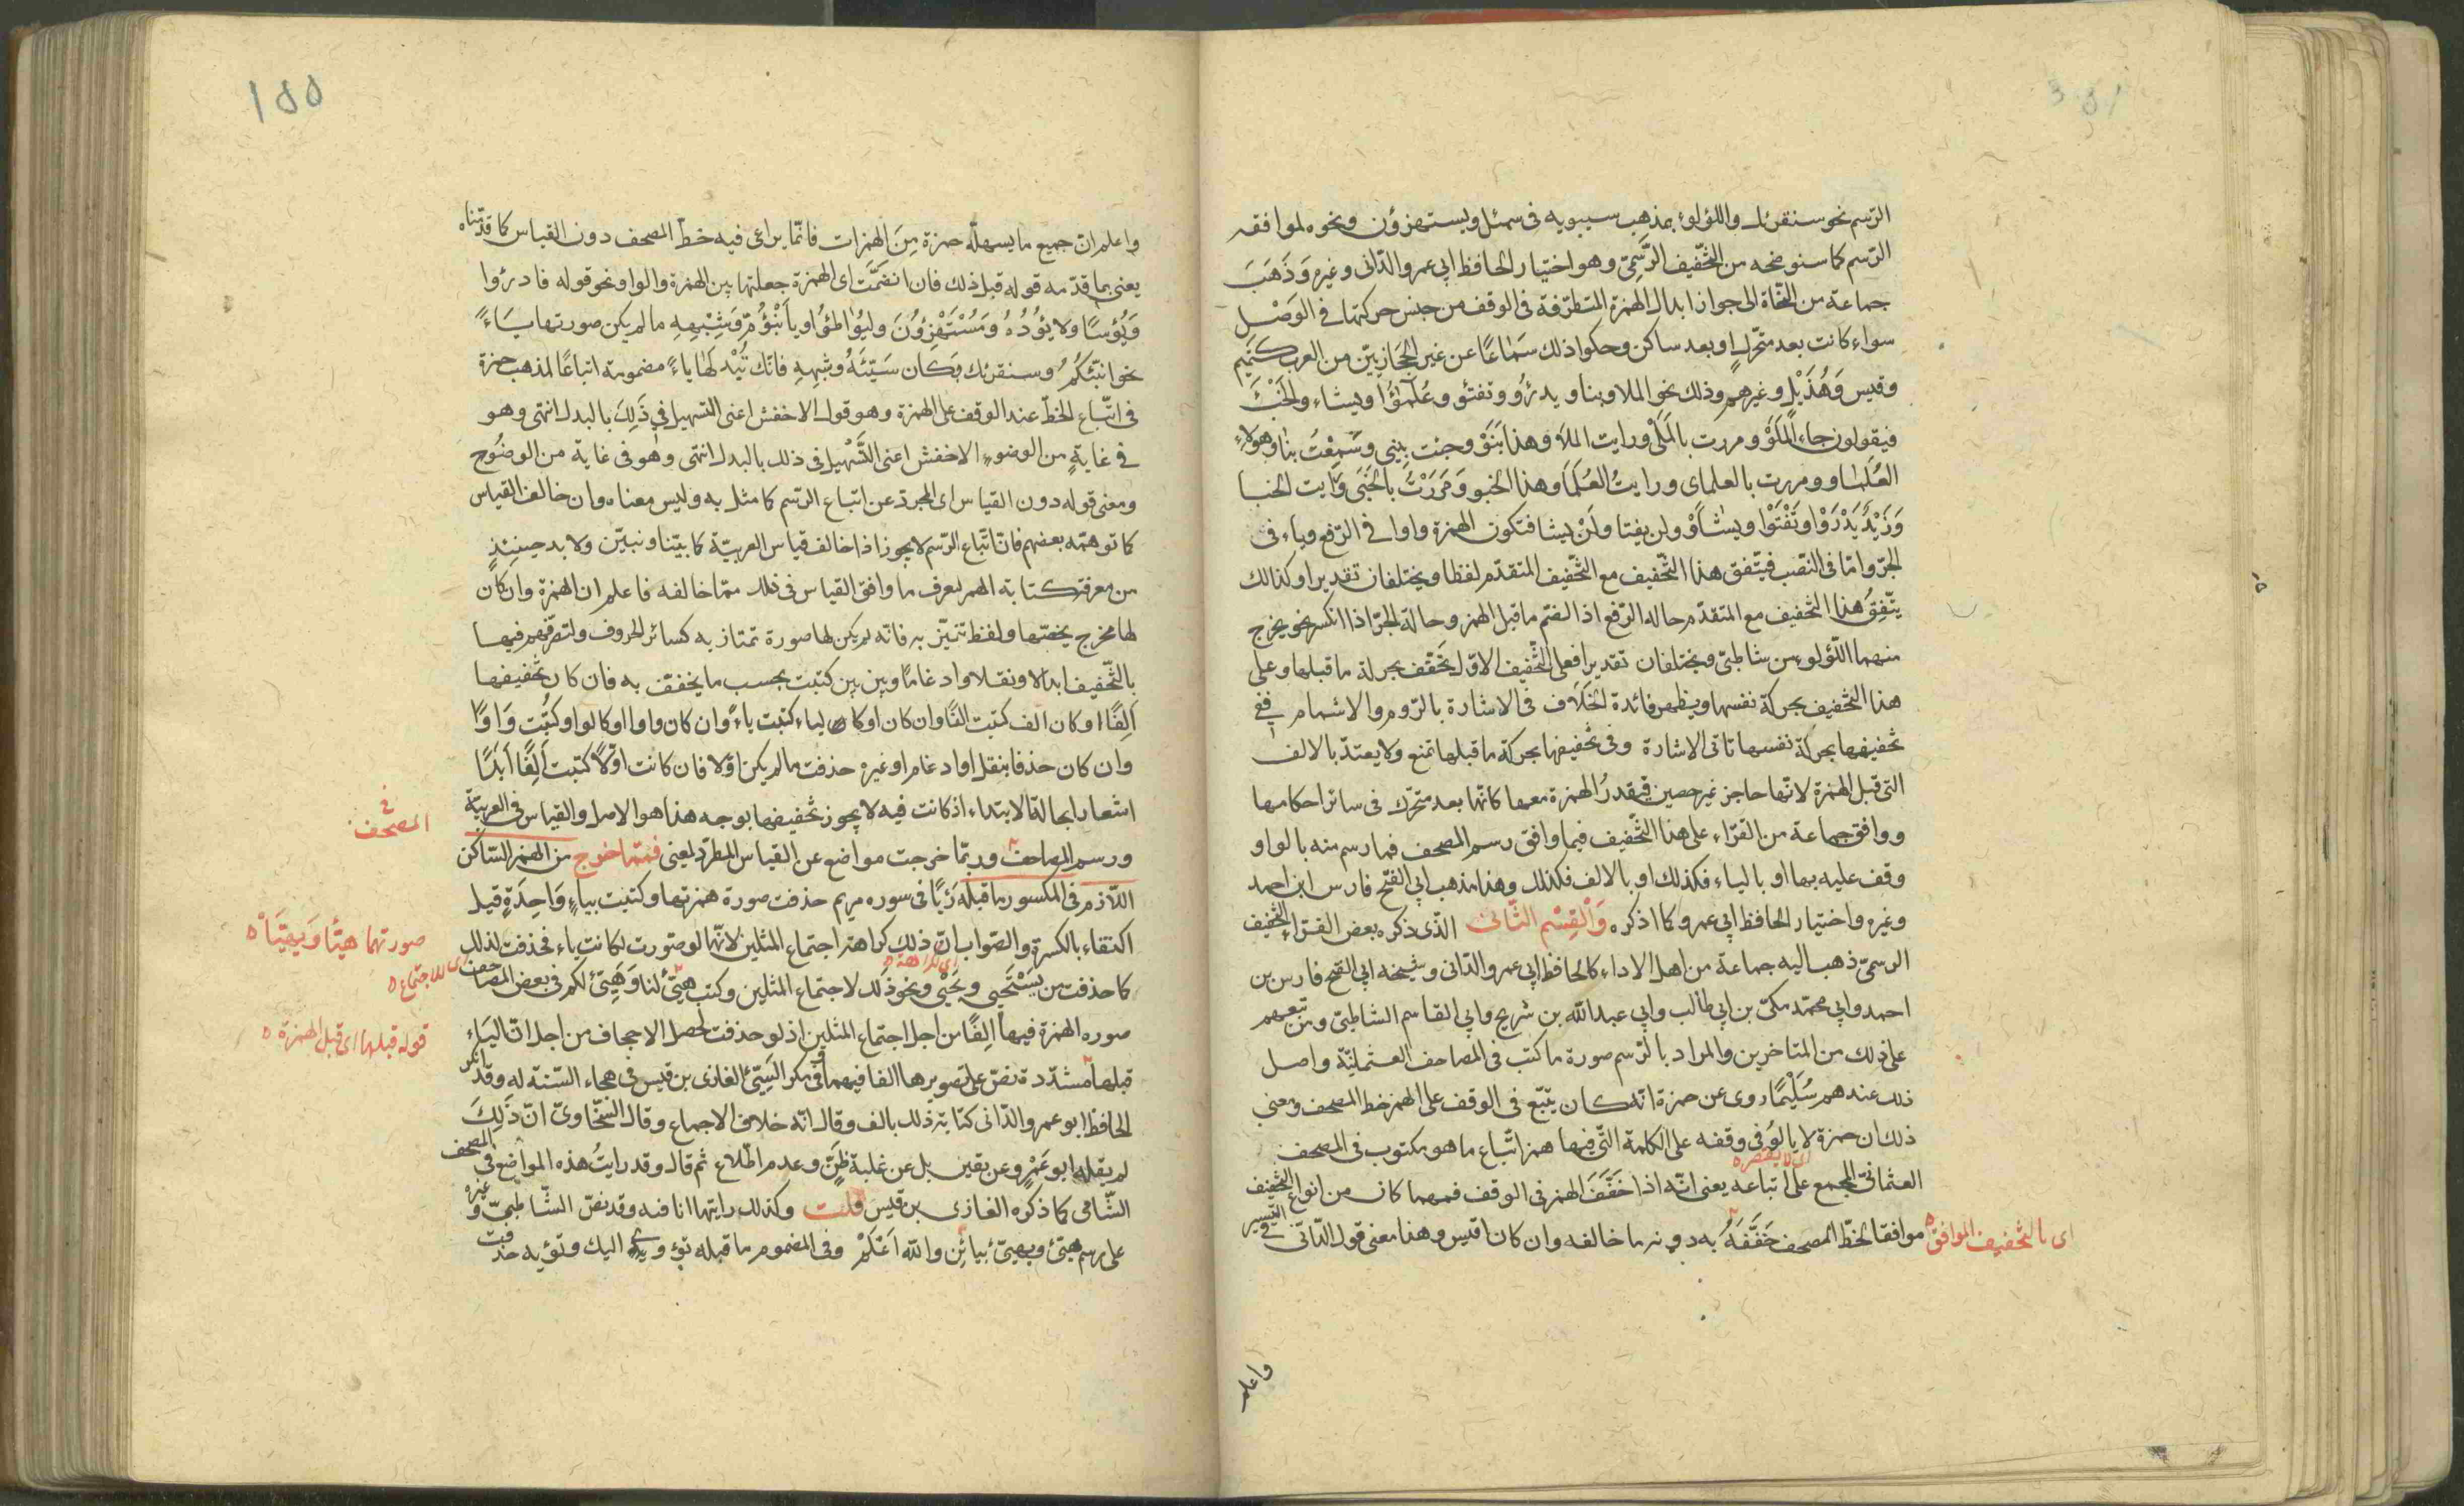 الرّسم نحو سنقرئك واللؤلوء بمذهب سيبويه فى سئل ويستهزؤن ونحوه لموافقه
الرّسم كما سنوضحه من التّخفيف الرّسمىّ وهو اختيار الحافظ ابى عمرو الدّانى وغيره وَذَهَبَ
جماعة من النّحاة الى جواز ابدال الهمزة المتطرّفة فى الوقف من جنس حركتها فى الوَصْل
سواء كانت بعد متحّرك او بعد ساكن وحكوا ذلك سَمَاعًا عن غير الحِجَازيّين من العرب كتميم
وقيس وَهُذَيْل وغيرهم وذلك نحو الملا وبنا ويدرؤ وتفتؤ وعُلَمٰؤُا ويشاء والخَبْءَ
فيقولون جاء المَلَوْ ومررت بالمَلَىْ ورايت المَلَا وهذا نَبَوْ وجئت بِنبى وسَمِعْتُ بنا وهولاء
العُلَمٰاو ومررت بالعلماى ورايتُ العُلَمَا وهذا الخبو وَمَرَرْتُ بالخَبَى وَرَايت الخبا
وَزَيْدٌ يَدْرَوْا وتَفْتَوْا ويشَاوْ ولن يفتا ولَنْ يشا فتكون الهمزة واوا فى الرّفع وياء فى
الجرّ وامّا فى النّصب فيتّفق هذا التّخفيف مع التّخفيف المتقدّم لفظا ويختلفان تقديرا وكذالك
يتّفِقُ هذا التّخفيف مع المتقدّم حاله الرّفع اذا انضمّ ما قبل الهمز وحالة الجرّ اذا انكسر نحو يخرج
منهما اللّؤلوء من شاطئ ويختلفان تقديرا فعلى التّخفيف الاوّل يخَفّف بحركة ما قبلها وعلى
هذا التّخفيف بحركة نفسها ويظهر فائدة الخَلَاف فى الاشارة بالرّوم والاشمام ففى
تخفيفها بحركة نفسها تاتى الاشارة وفى تخفيفها بحركة ما قبلها تمنع ولا يعتدّ بالالف
التى قبل الهمزة لانّها حاجز غير حصين فيقدرُ الهمزة معها كانّها بعد متحرّك فى سائر احكامها
ووافق جماعة من القرّاء على هذا التّخفيف فيما وافق رسم المصحف فما رسم منه بالواو
وقف عليه بها او بالياء فكذلك او بالالف فكذلك وهذا مذهب ابى الفتح فارس ابن احمد
وغيره واختيار الحافظ ابى عمرو كما اذكره وَالْقِسْم الثّانى الذّى ذكره بعض القرّاء التّخفيف
الرسمىّ ذهب اليه جماعة من اهل الاداء كالحافظ ابى عمرو الدّانى وشيخه ابى الفتح فارس بن
احمد وابى محمّد مكىّ بن ابى طالب وابى عبد اللّه بن شريح وابى القاسم الشاطبىّ ومن تبعهم
على ذلك من المتاخرين والمراد بالرّسم صورة ما كتب فى المصاحف العثمانيّة واصل
ذلك عندهم سُلَيْمًا روى عن حمزة انّه كان يتّبع فى الوقف على الهمز خط المصحف ومعنى
ذلك ان حمزة لا يالُو فى وقفه على الكلمة التّى فيها همز اتّباع ما هو مكتوب فى المصحف
اى لا يقصره
العثمانىّ المجمع على اتباعه يعنى انّه اذا خَفَّفَ الهمز فى الوقف فمهما كان من انواع التّخفيف
موافقا لخطّ المصحف خَفَّفَهُ به دون ما خالفه وان كان اقيس وهذا معنى قول الدّانى فى التّيسير
اى بالتّخفيف الموافق
واعلم
155
واعلم انّ جميع ما يسهلّه حمزة مِنَ الهمزات فانّما يراعى فيه خطّ المصحف دون القياس كما قدّمناه
يعنى بما قدّمه قوله قبل ذلك فان انضمّت اى الهمزة جعلتها بين الهمزة والواو نحو قوله فادرؤا
وَيُؤسًا ولا يؤُدُهُ وَمُسْتَهْزِؤُنَ وليُوَٰاطئُوا ويا بْنَؤُمّ وَشِبْهِهِ ما لم يكن صورتها يَاءً
نحو انبّئكُمُ وسنقرئك وَكان سَيّئَهُ وشِبهِهِ فانّك تُبْدلهَا ياءً مضمومة اتباعًا لمذهب حمزة
فى اتّباع الخطّ عند الوقف على الهمزة وهو قول الاخفش اعنى التسهيل فِي ذَلِكَ بالبدل انتهى وهو
فى غايةٍ من الوضوء الاخفش اعنى التَّسْهِيل فى ذلك بالبدل انتهى وهو فى غاية من الوضُوح
ومعنى قوله دون القياس اى المجرّد عن اتباع الرّسم كما مثل به وليس معناه وان خالف القياس
كما توهّمه بعضهم فانّ اتّباع الرّسم لا يجوز اذا خالف قياس العربيّة كما بيّنا ونبيّن ولا بد حِينئِذٍ
من معرفة كتابة الهمز ليعرف ما وافق القياس فى ذلك ممّا خالفه فاعلم ان الهمزة وان كان
لها مخرج يخصّها ولفظ تتميّز به فانّه لم يكن لها صورة تمتاز به كسائر الحروف ولتصرّفهم فيها
بالتّخفيف ابدالا ونقلا وادغامًا وبين بين كتبت بحسب ما يخفف به فان كان تخفيفها
اَلِفًا او كان الف كتبت الفًا وان كان او كالياء كتبت ياءً وان كان واوا او كالواو كتبت وَاوًا
وان كان حذفا بنقل او ادغام او غيره حذفت ما لم يكن اوّلا فان كانت اوّلاً كتبت اَلِفًا اَبَدًا
اشعارا بحالة الابتداء اذ كانت فيه لا يجوز تخفيفها بوجه هذا هو الاصل والقياس فى العربيّة
ورسم المصاحف وربّما خرجت مواضع عن القياس المطرّد لمعنى فممّا خرج من الهمز السّاكن
اللّازم فى المكسور ما قبله رَئيًا فى سوره مريم حذفت صورة همزتها وكتبت بياءٍ وَاحِدَةٍ قيل
اكتفاء بالكسرة والصّواب انّ ذلك كراهة اجتماع المثلين لانّها لو صوّرت لكانت ياء فحذفت لذلك
اى لكراهة
كما حذفت من يَسْتَحْيى ويُحْيى ونحو ذلك لاجتماع المثلين وكتب هَيّئ لنا وَيُهَيّئ لكم فى بعض المصاحف
صوره الهمزة فيهما اَلِفًا من اجل اجتماع المثلين اذ لو حذفت لحصل الاجحاف من اجل انّ اليَاء
قبلها مشدّدة نصّ على تصويرها الفا فيهما وفى مكر السّيّئ الغازى بن قيس فى هجاء السّنة له وقد انكر
الحافظ ابو عمرو الدّانى كتابة ذلك بالف وقال انّه خلاف الاجماع وقال السّخاوىّ انّ ذَلِكَ
لم يقله ابو عَمْرٍو عن يقين بل عن غلبة ظنّ وعدم اطّلاع ثم قال وقد رايتُ هذه المواضع فى المصحف
الشّامى كما ذكره الغازى بن قيس قلت وكذلك رايتها انا فيه وقد نصّ الشّاطبىّ وغيره
على رسم هيّئ ويهيّئ بيائين واللّه اَعْلَمْ وفى المضموم ما قبله تؤوى اليك وتؤيه حذفت
فى
المصحف
صورتهما هيّئا وَيهيّئَاْ
اى للاجتماع
قوله قبلها اى قبل الهمزة